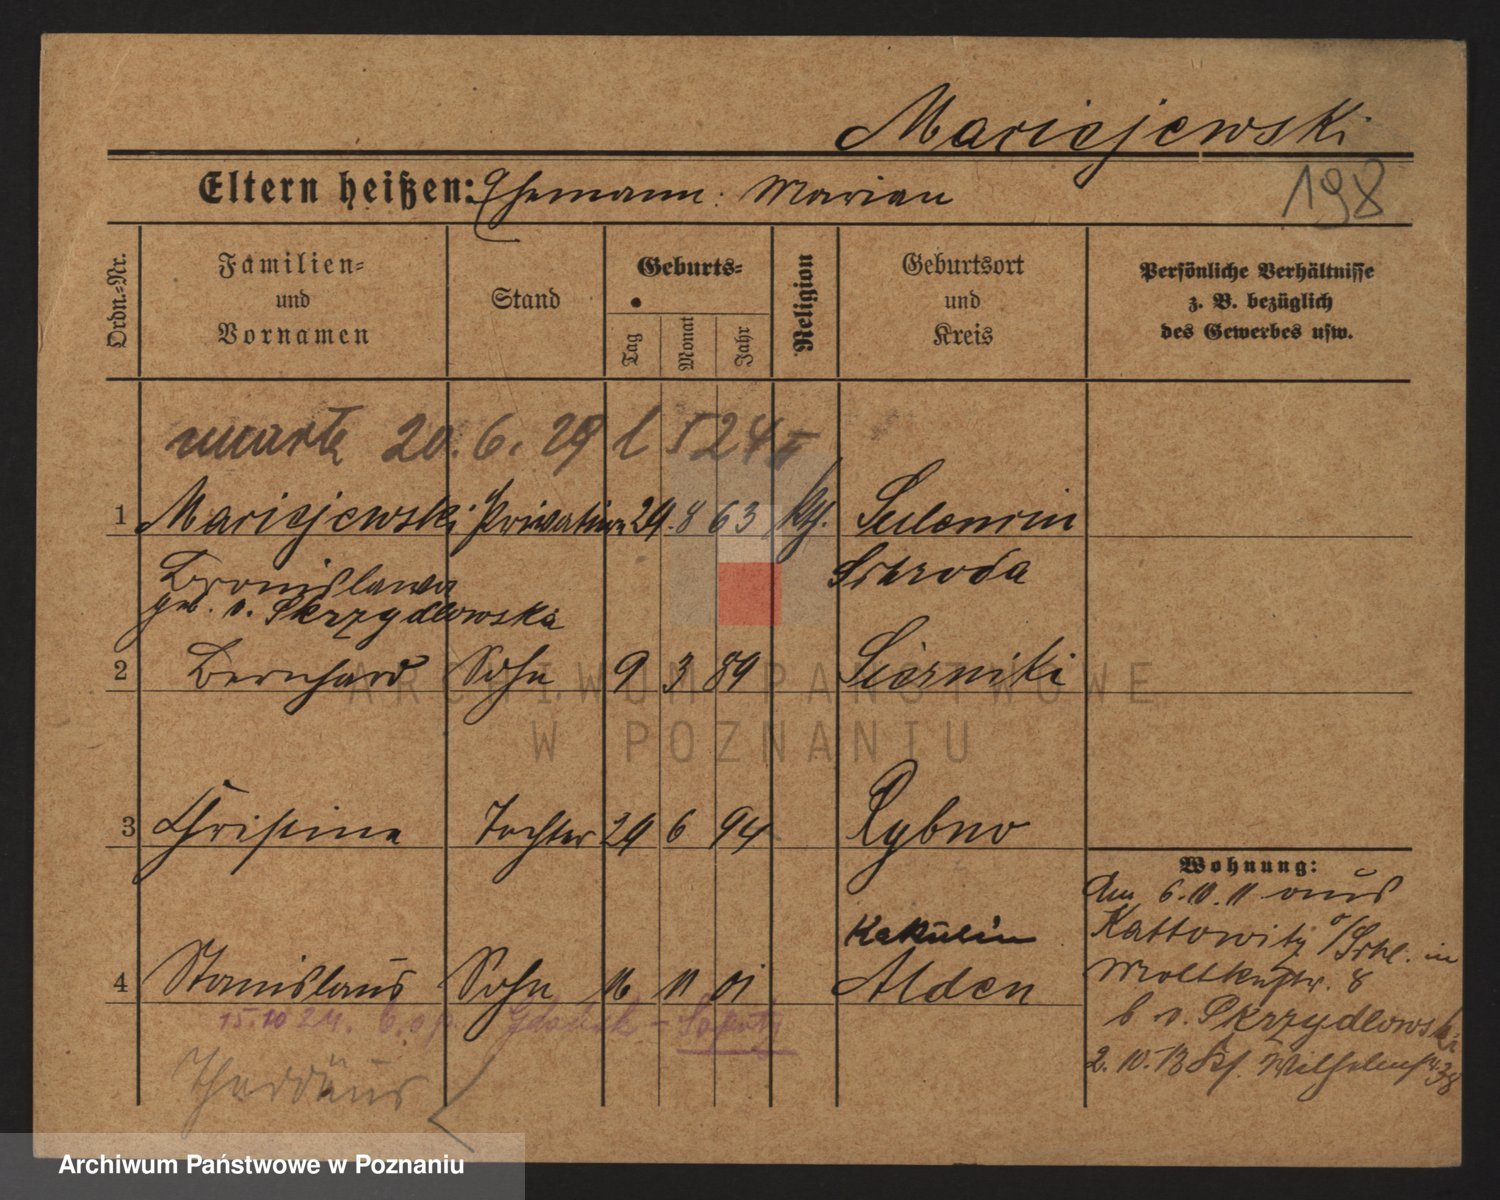 Maciejewski
Eltern heißen: Ehemann: Marian
198
Ordn.-Nr.
Familien-
und
Vornamen
Stand
Geburts-
Tag
Monat
Jahr
Religion
Geburtsort
und
Kreis
Persönliche Verhältnisse
z. B. bezüglich
des Gewerbes usw.
zmarła 20.6.29 l 524
1 Maciejewski 29 8 63 kth. Sulencin
Bronislawa Schroda
geb. v. Skrzydlowska
2 Bernhard Sohn 9 3 89 Sierniki
ARCHIWUM PAŃSTWOWE
W POZNANIU
3 Christine Tochter 29 6 94 Rybno
Wohnung:
Am 6.10.11 aus
Kattowitz o/Schl. in
Moltkestr. 8
b v. Skrzydlowski
2.10.13 Wilhelmstr. 38
Kakulin
4 Stanislaus Sohn 16 11 01 Alden
15.10 24. Gdańsk -
Thaddäus
Archiwum Państwowe w Poznaniu